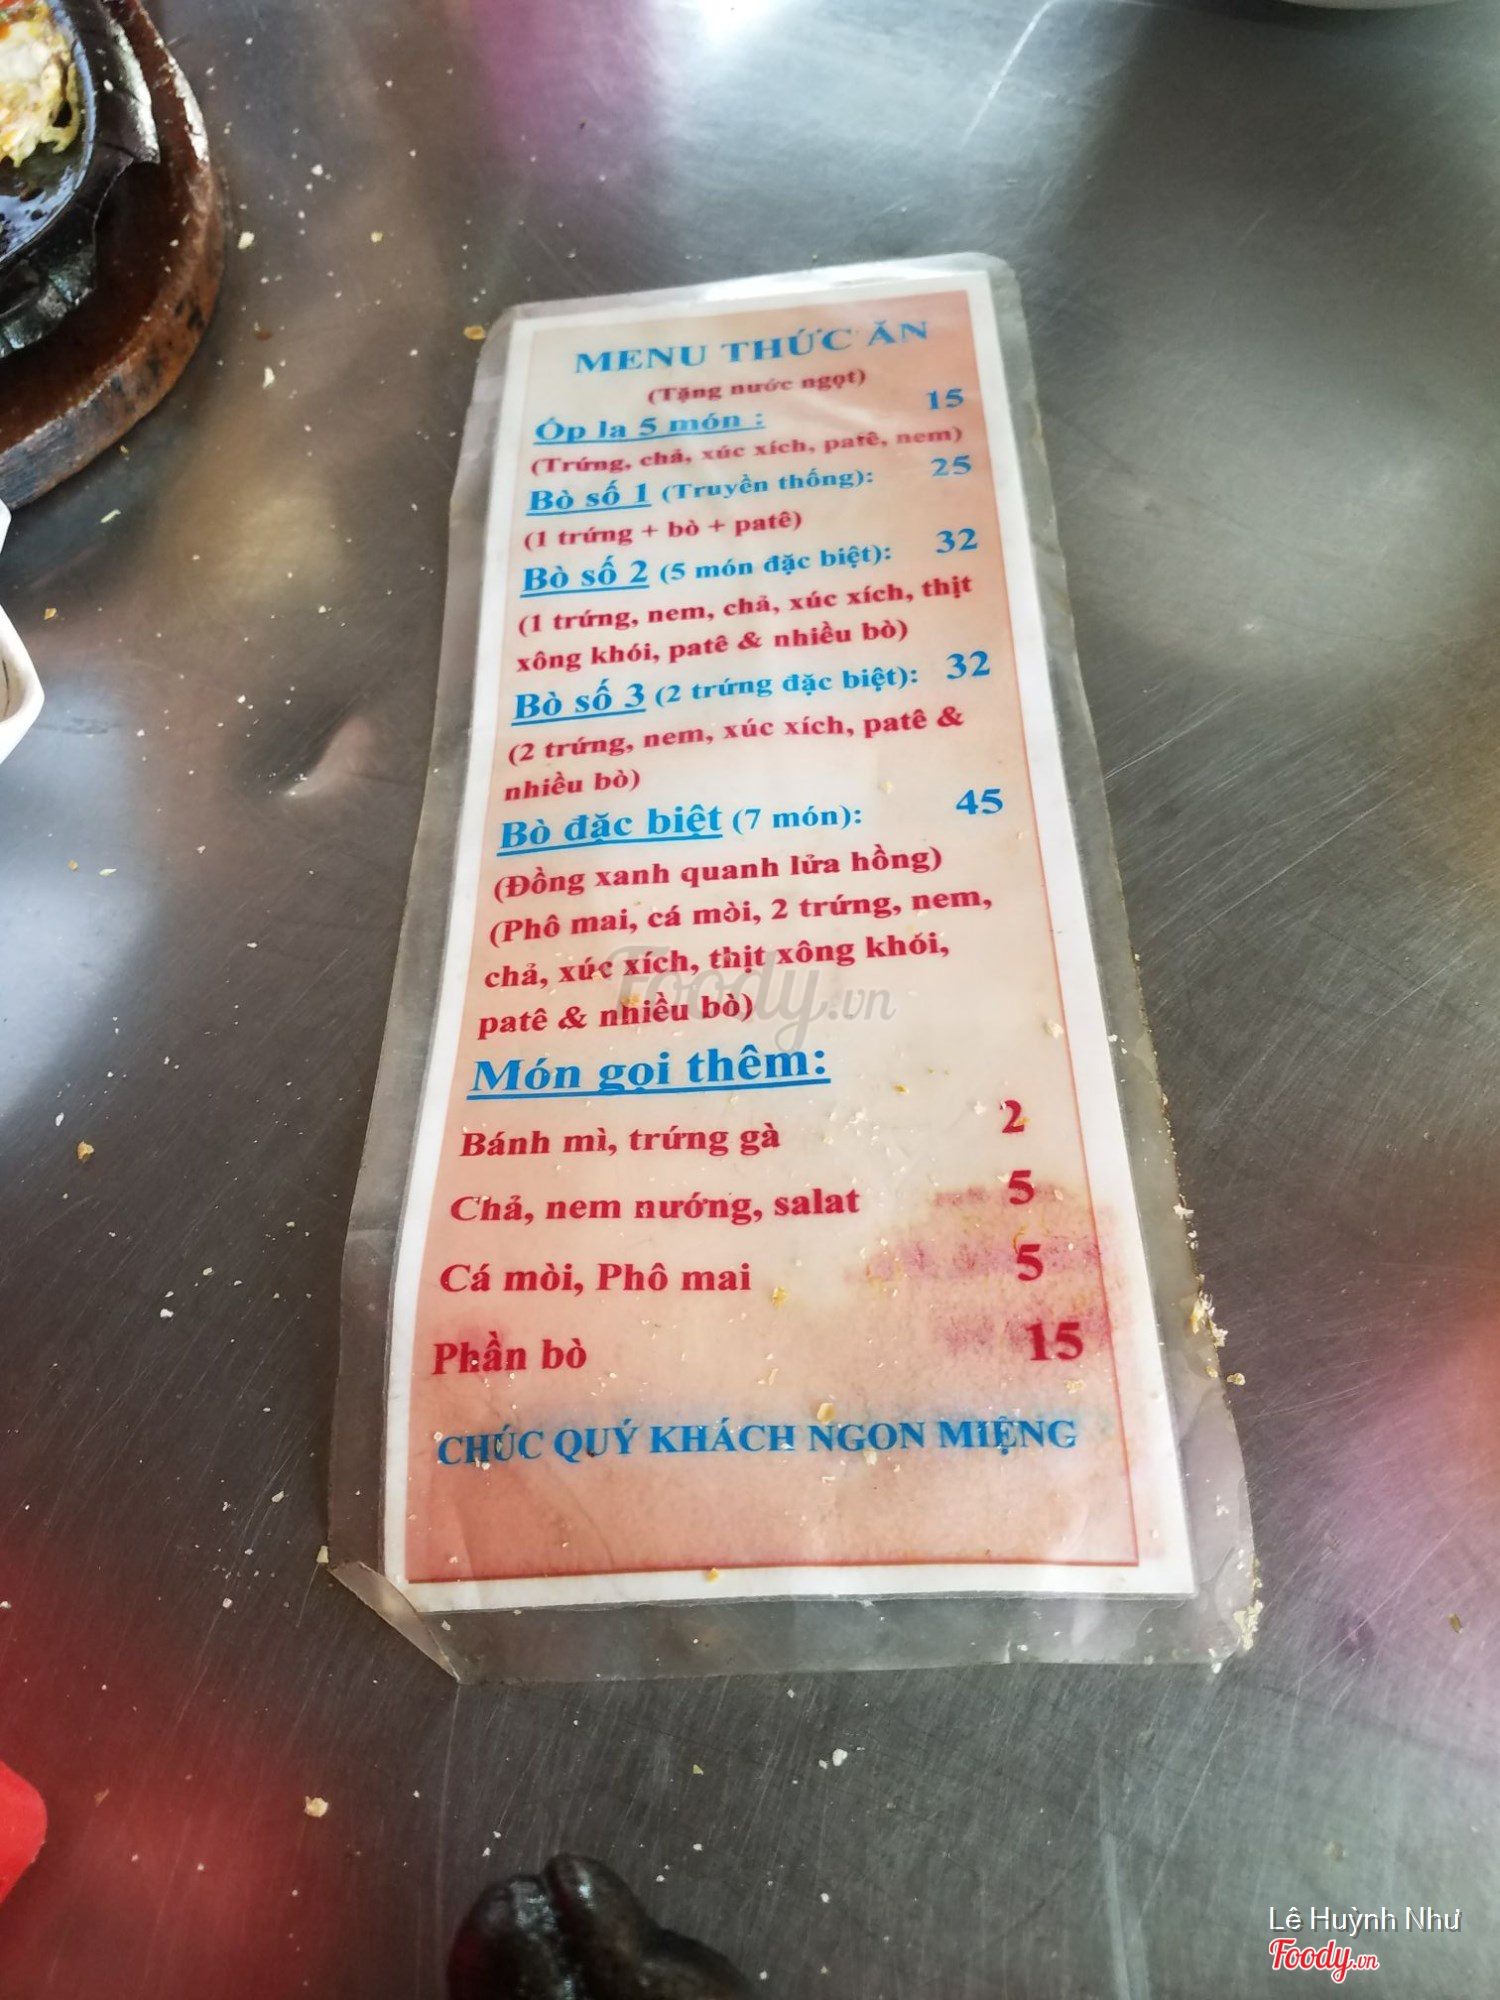 MENU THỨC ĂN
(Tặng nước ngọt)
Ốp la 5 món : 15
(Trứng, chả, xúc xích, patê, nem)
Bò số 1 (Truyền thống): 25
(1 trứng + bò + patê)
Bò số 2 (5 món đặc biệt): 32
(1 trứng, nem, chả, xúc xích, thịt
xông khói, patê & nhiều bò)
Bò số 3 (2 trứng đặc biệt): 32
(2 trứng, nem, xúc xích, patê &
nhiều bò)
Bò đặc biệt (7 món): 45
(Đồng xanh quanh lửa hồng)
(Phô mai, cá mòi, 2 trứng, nem,
chả, xúc xích, thịt xông khói,
patê & nhiều bò)
Foody.vn
Món gọi thêm:
Bánh mì, trứng gà 2
Chả, nem nướng, salat 5
Cá mòi, Phô mai 5
Phần bò 15
CHÚC QUÝ KHÁCH NGON MIỆNG
Lê Huỳnh Như
Foody.vn